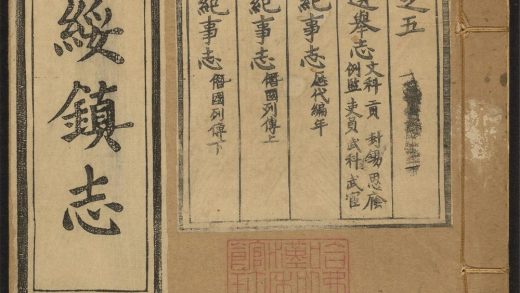 之五
選舉志 文科 貢 封錫 恩廕
例監 吏員 武科 武官
紀事志 歷代編年
紀事志 僭國列傳上
紀事志 僭國列傳下
綏鎮志